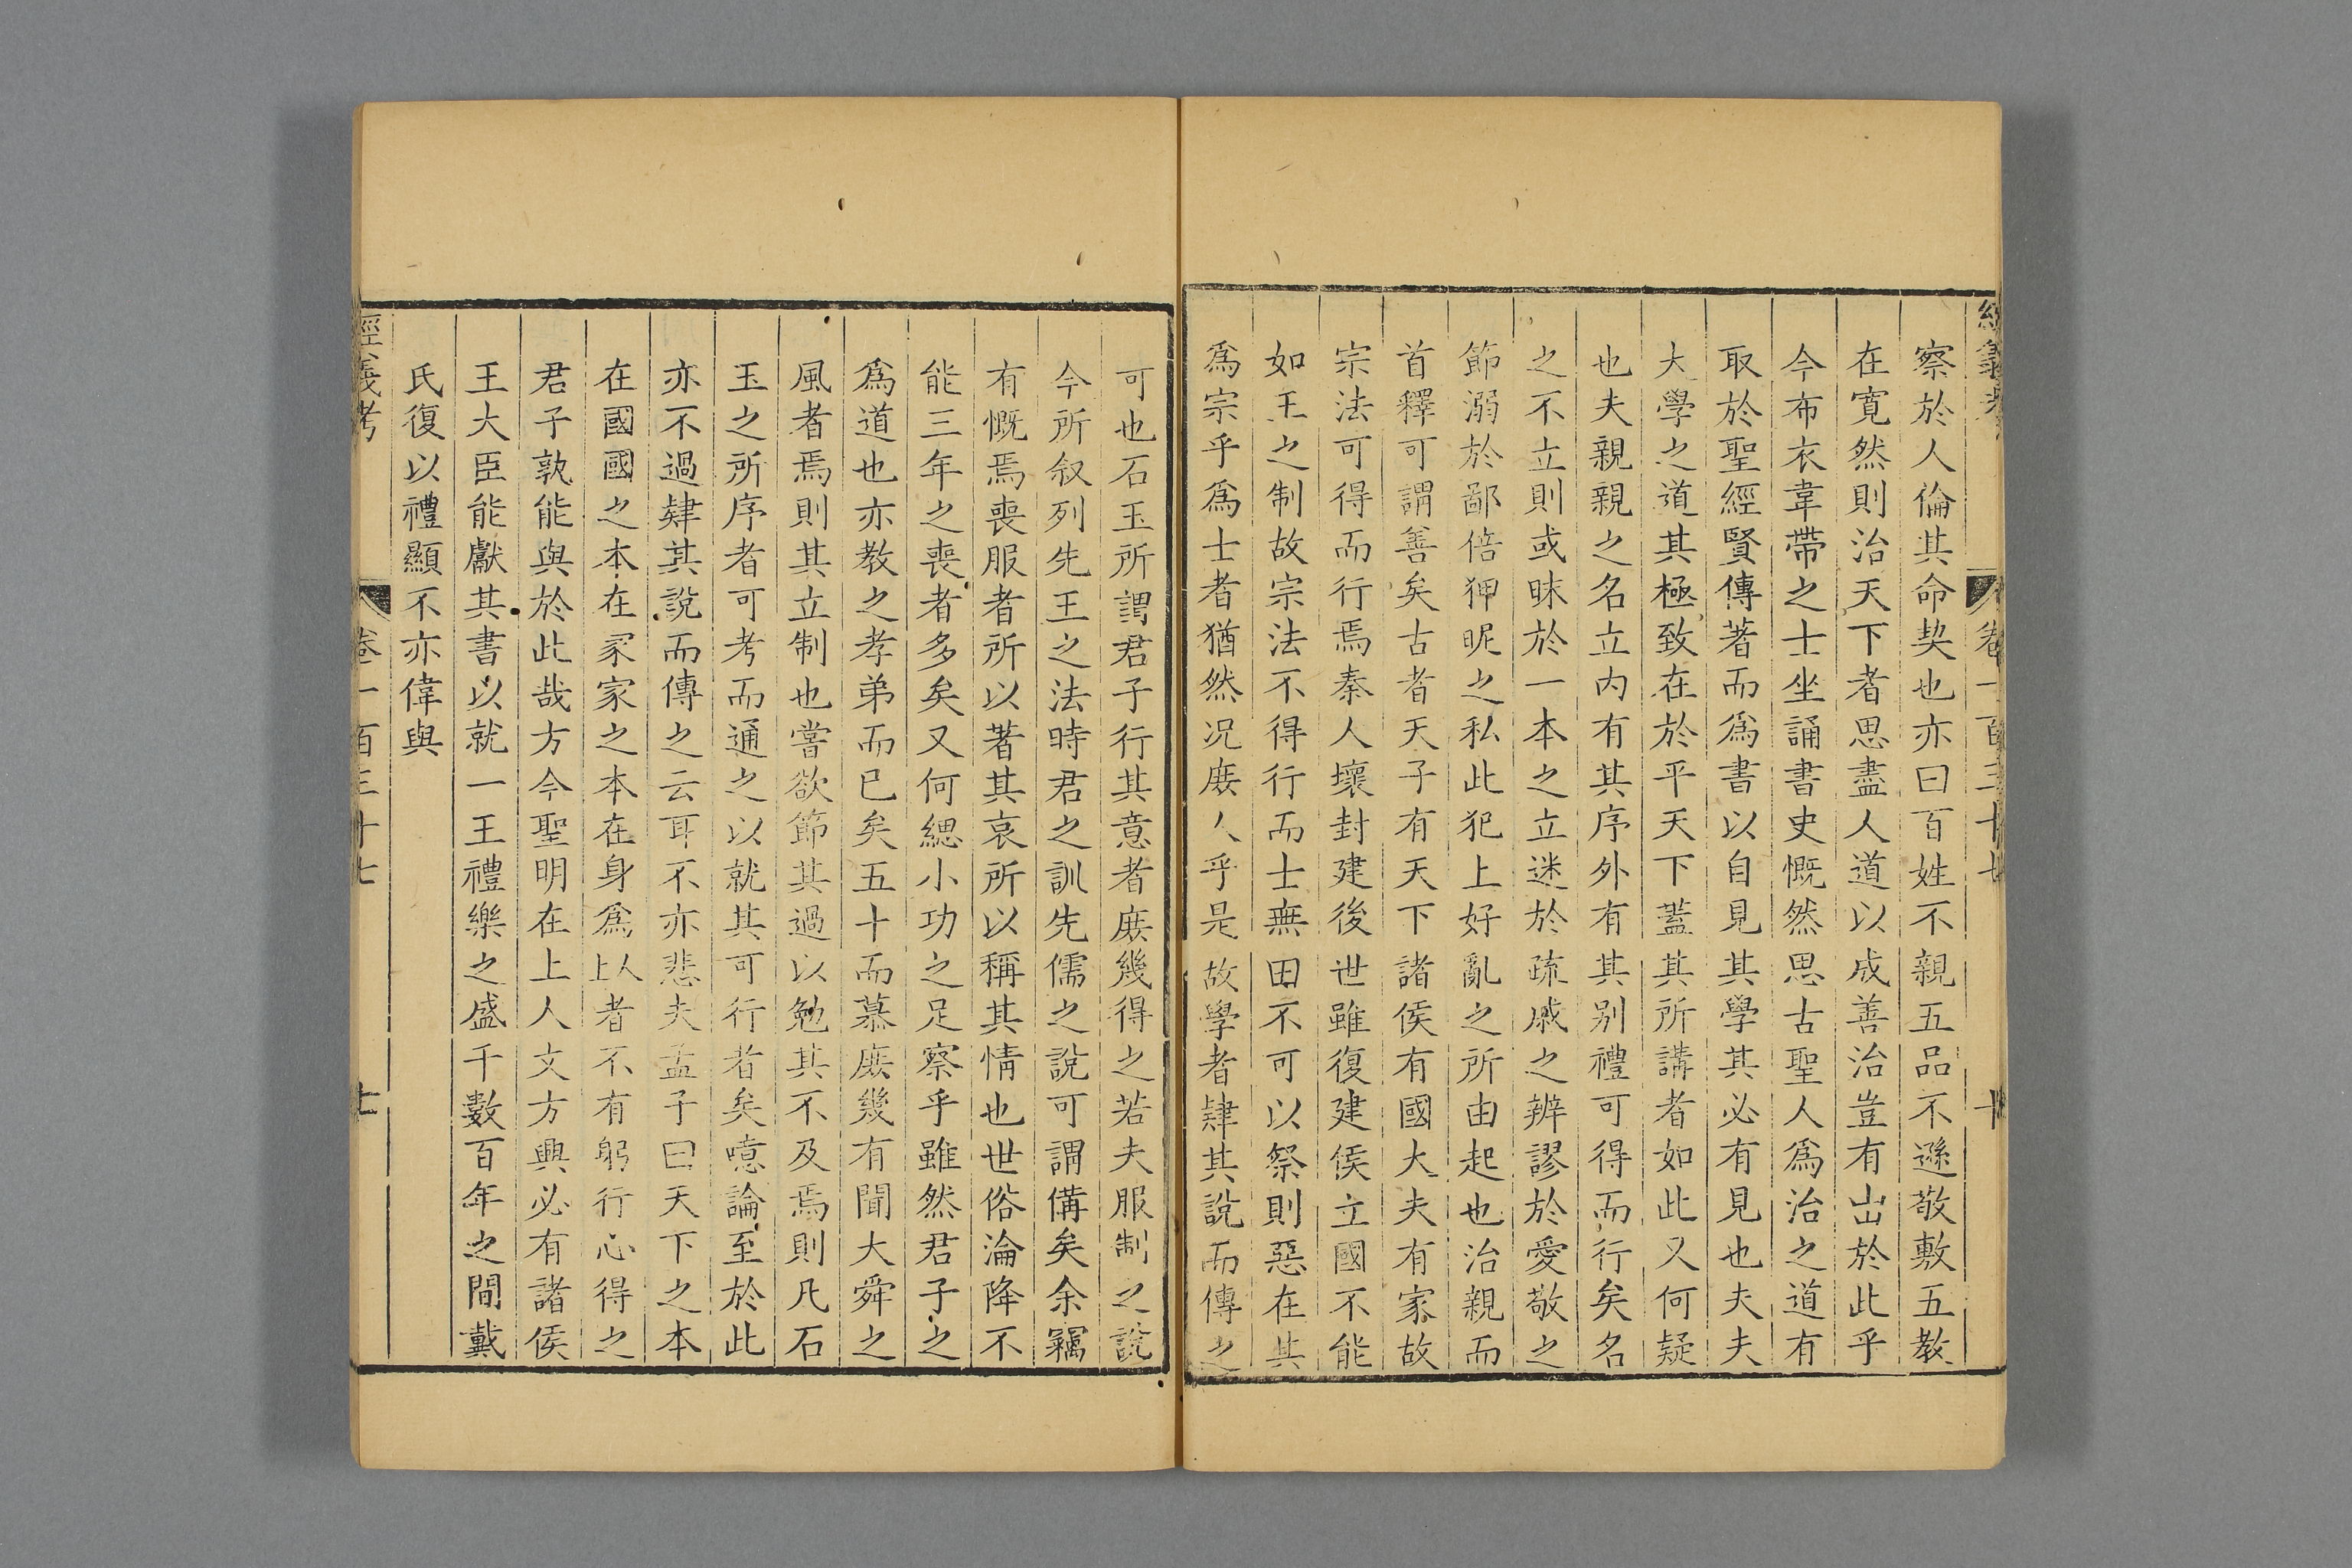 經義考 卷一百三十七 十
察於人倫其命契也亦曰百姓不親五品不遜敬敷五教
在寛然則治天下者思盡人道以成善治豈有出於此乎
今布衣韋帶之士坐誦書史慨然思古聖人爲治之道有
取於聖經賢傳著而爲書以自見其學其必有見也夫夫
大學之道其極致在於平天下蓋其所講者如此又何疑
也夫親親之名立内有其序外有其别禮可得而行矣名
之不立則或昧於一本之立迷於疏戚之辨謬於愛敬之
節溺於鄙倍狎昵之私此犯上好亂之所由起也治親而
首釋可謂善矣古者天子有天下諸侯有國大夫有家故
宗法可得而行焉秦人壞封建後世雖復建侯立國不能
如王之制故宗法不得行而士無田不可以祭則惡在其
爲宗乎爲士者猶然况庶人乎是故學者肄其說而傳之
可也石玉所謂君子行其意者庶幾得之若夫服制之說
今所叙列先王之法時君之訓先儒之說可謂備矣余竊
有慨焉喪服者所以著其哀所以稱其情也世俗淪降不
能三年之喪者多矣又何緦小功之足察乎雖然君子之
爲道也亦教之孝弟而已矣五十而慕庶幾有聞大舜之
風者焉則其立制也嘗欲節其過以勉其不及焉則凡石
玉之所序者可考而通之以就其可行者矣噫論至於此
亦不過肄其說而傳之云耳不亦悲夫孟子曰天下之本
在國國之本在家家之本在身爲人上者不有躬行心得之
君子孰能與於此哉方今聖明在上人文方興必有諸侯
王大臣能獻其書以就一王禮樂之盛千數百年之間戴
氏復以禮顯不亦偉與
經義考 卷一百三十七 十